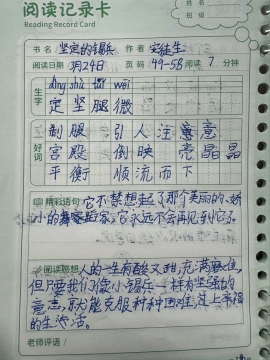 阅读记录卡
Reading Record Card
姓名
班级
书 名 坚定的锡兵 作 者
阅读日期 月24日 页 码 49-58 阅读 7 分钟
生字
定 坚 腿 微
好词
制服 引人注意 意
宫殿 倒映 亮晶晶
平衡 顺流而下
精彩语句 它不禁想起了那个美丽的、娇
小的舞蹈家,它永远不会再见到它了。
阅读感想 人的一生有酸又甜,充满艰难,
但只要我们像小锡兵一样有坚强的
意志,就能克服种种困难,过上幸福
的生活。
老师评语